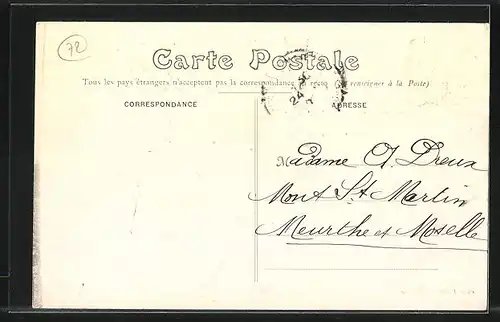 72
Carte Postale
Tous les pays étrangers n'acceptent pas la correspondance au recto (Se renseigner à la Poste)
CORRESPONDANCE
ADRESSE
24
Madame A. Dreux
Mont St Martin
Meurthe et Moselle